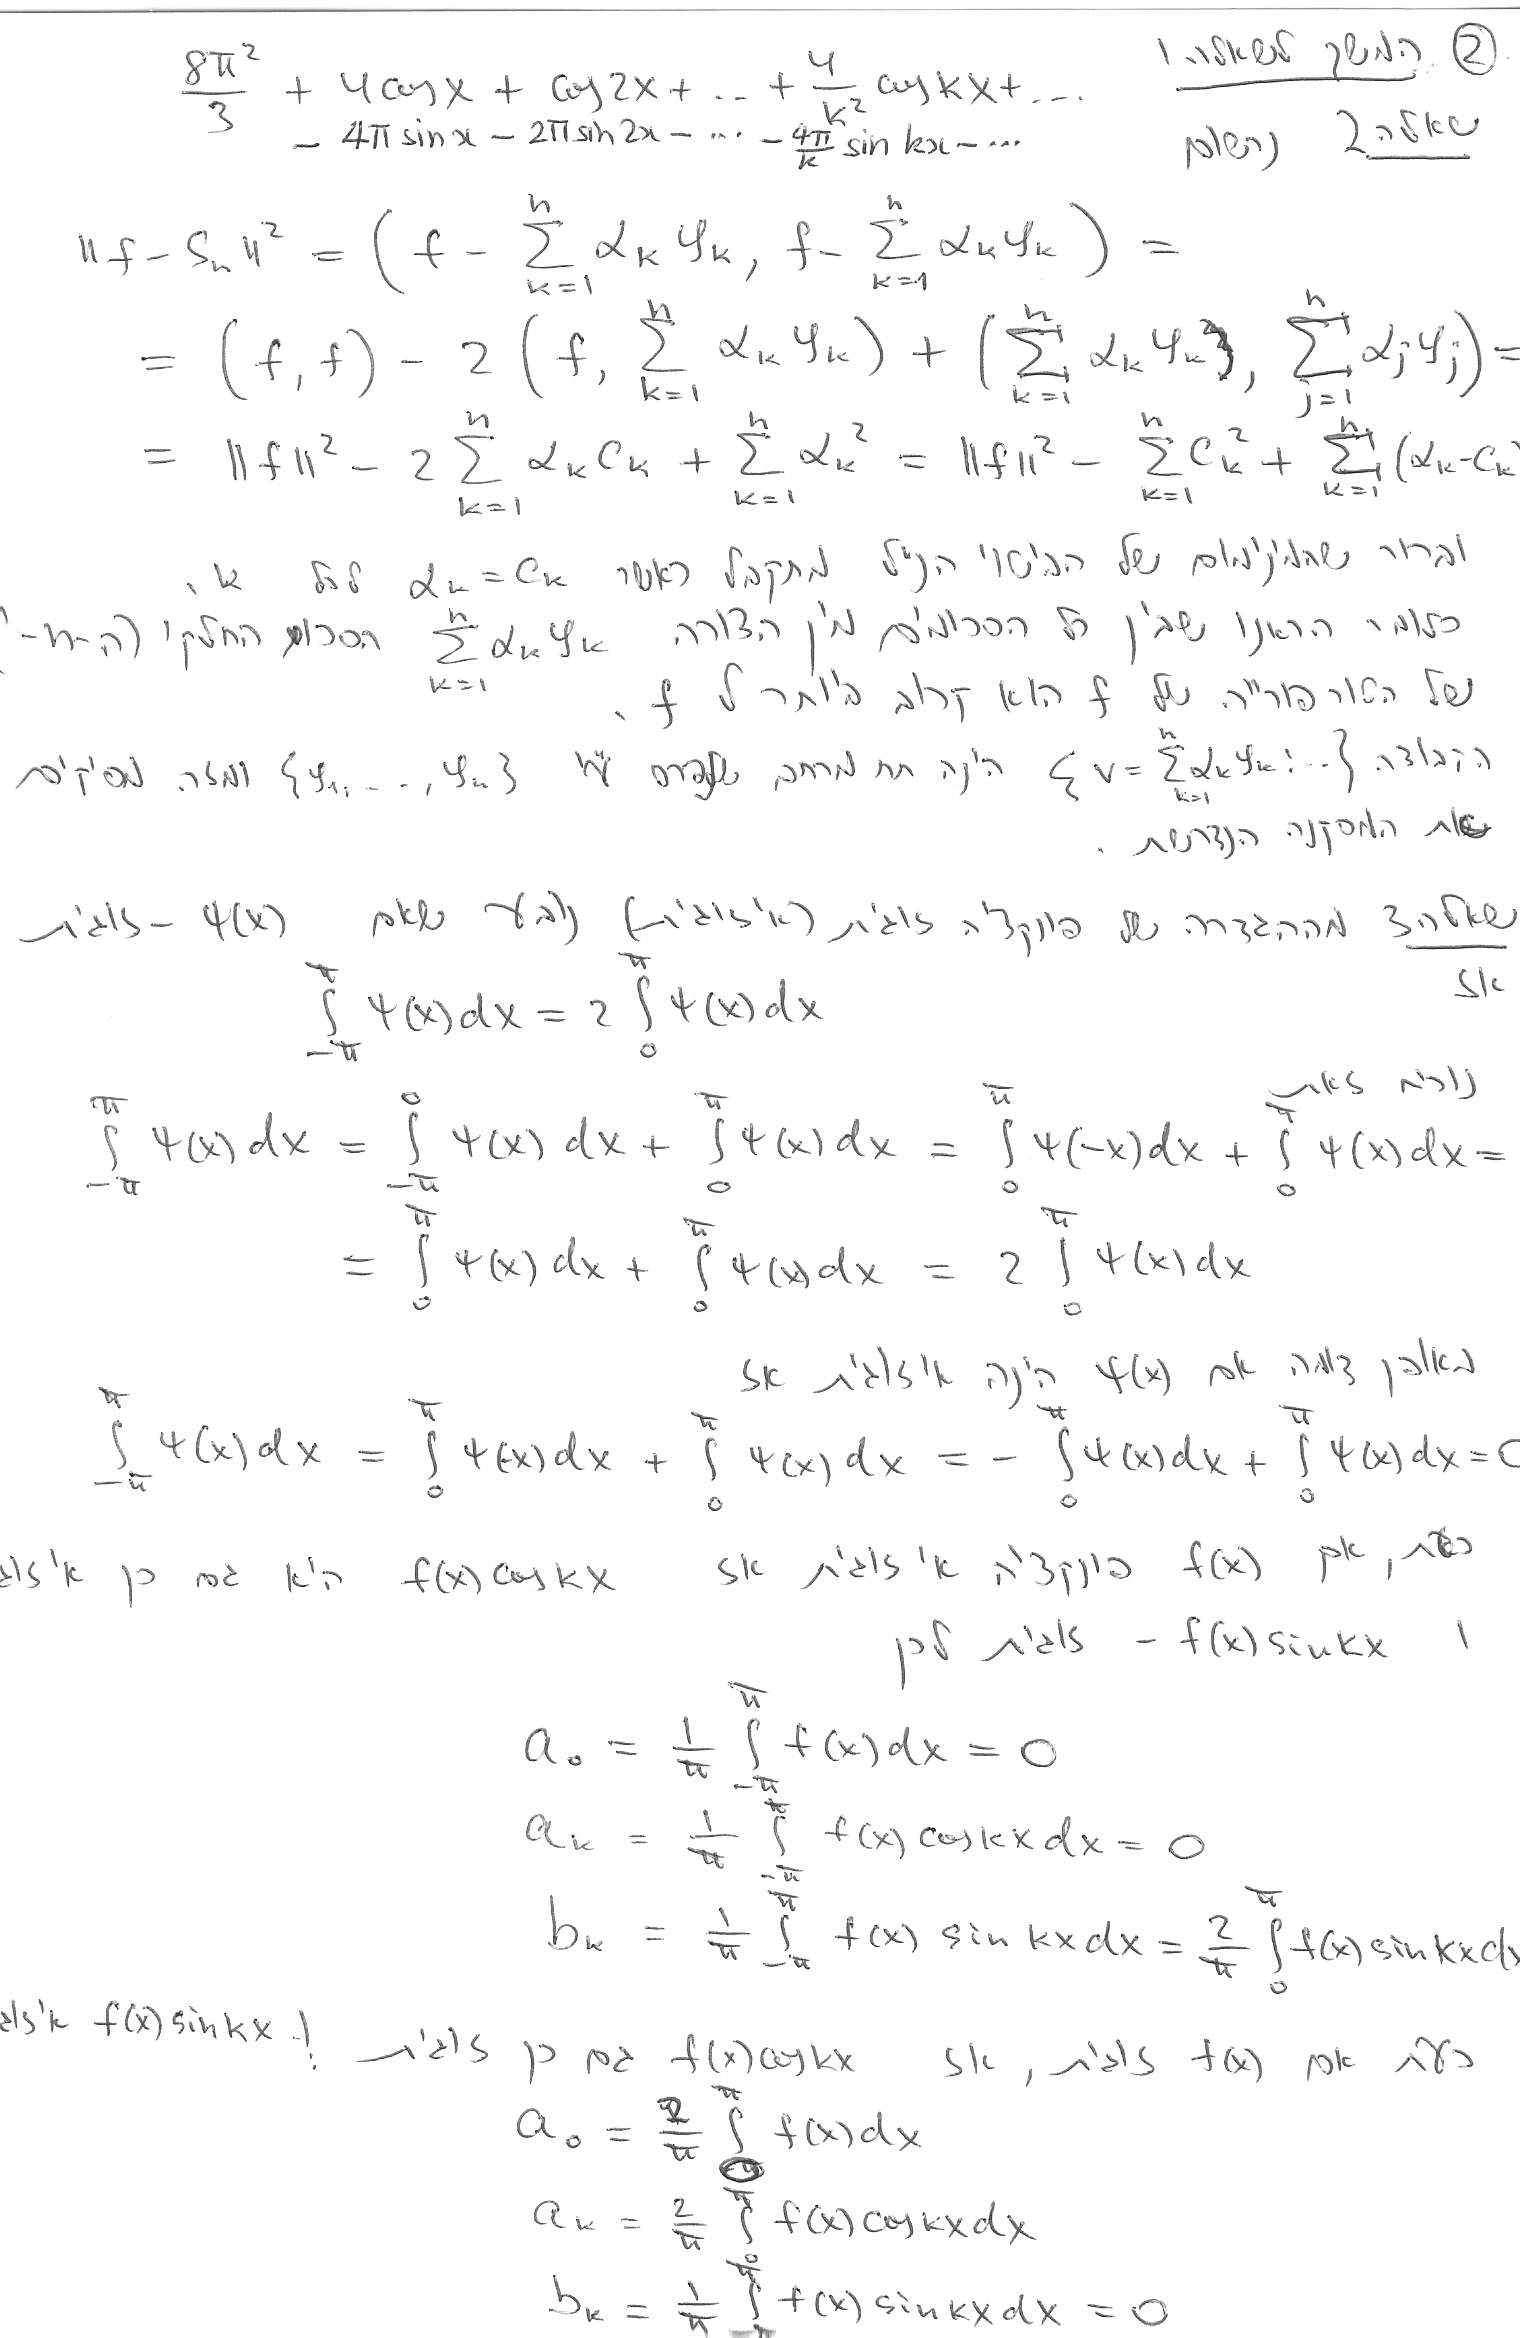 ② המשך לשאלה 1
8π²/3 + 4cosx + cos2x + ... + 4/k² cos kx + ...
− 4π sin x − 2π sin 2x − ... − 4π/k sin kx − ...
שאלה 2 נרשום
‖f − Sₙ‖² = (f − Σₖ₌₁ⁿ αₖφₖ, f − Σₖ₌₁ⁿ αₖφₖ) =
= (f, f) − 2(f, Σₖ₌₁ⁿ αₖφₖ) + (Σₖ₌₁ⁿ αₖφₖ, Σⱼ₌₁ⁿ αⱼφⱼ) =
= ‖f‖² − 2Σₖ₌₁ⁿ αₖcₖ + Σₖ₌₁ⁿ αₖ² = ‖f‖² − Σₖ₌₁ⁿ cₖ² + Σₖ₌₁ⁿ (αₖ−cₖ
וברור שהמינימום של הביטוי הנ"ל מתקבל כאשר αₖ = cₖ לכל k,
כלומר הראנו שבין כל הסכומים מין הצורה Σₖ₌₁ⁿ αₖφₖ הסכום החלקי (ה-n-
של הטור פוריה של f הוא קרוב ביותר ל f.
הקבוצה {v = Σₖ₌₁ⁿ αₖφₖ : ...} הינה תת מרחב שנפרס ע"י {φ₁, ..., φₙ} ומזה מסיקים
את המסקנה הנדרשת.
שאלה 3 מההגדרה של פונקציה זוגית (אי זוגית) נובע שאם ψ(x) - זוגית
אז
∫₋π^π ψ(x)dx = 2∫₀^π ψ(x)dx
נוכיח זאת
∫₋π^π ψ(x)dx = ∫₋π^0 ψ(x)dx + ∫₀^π ψ(x)dx = ∫₀^π ψ(−x)dx + ∫₀^π ψ(x)dx =
= ∫₀^π ψ(x)dx + ∫₀^π ψ(x)dx = 2∫₀^π ψ(x)dx
באופן דומה אם ψ(x) הינה אי זוגית אז
∫₋π^π ψ(x)dx = ∫₀^π ψ(−x)dx + ∫₀^π ψ(x)dx = −∫₀^π ψ(x)dx + ∫₀^π ψ(x)dx = 0
כעת, אם f(x) פונקציה אי זוגית אז f(x)cos kx היא גם כן אי זוג
ו f(x) sin kx - זוגית לכן
a₀ = 1/π ∫₋π^π f(x)dx = 0
aₖ = 1/π ∫₋π^π f(x) cos kx dx = 0
bₖ = 1/π ∫₋π^π f(x) sin kx dx = 2/π ∫₀^π f(x) sin kx dx
כעת אם f(x) זוגית, אז f(x)cos kx גם כן זוגית ו f(x) sin kx אי זוג
a₀ = 2/π ∫₀^π f(x)dx
aₖ = 2/π ∫₀^π f(x) cos kx dx
bₖ = 1/π ∫₋π^π f(x) sin kx dx = 0